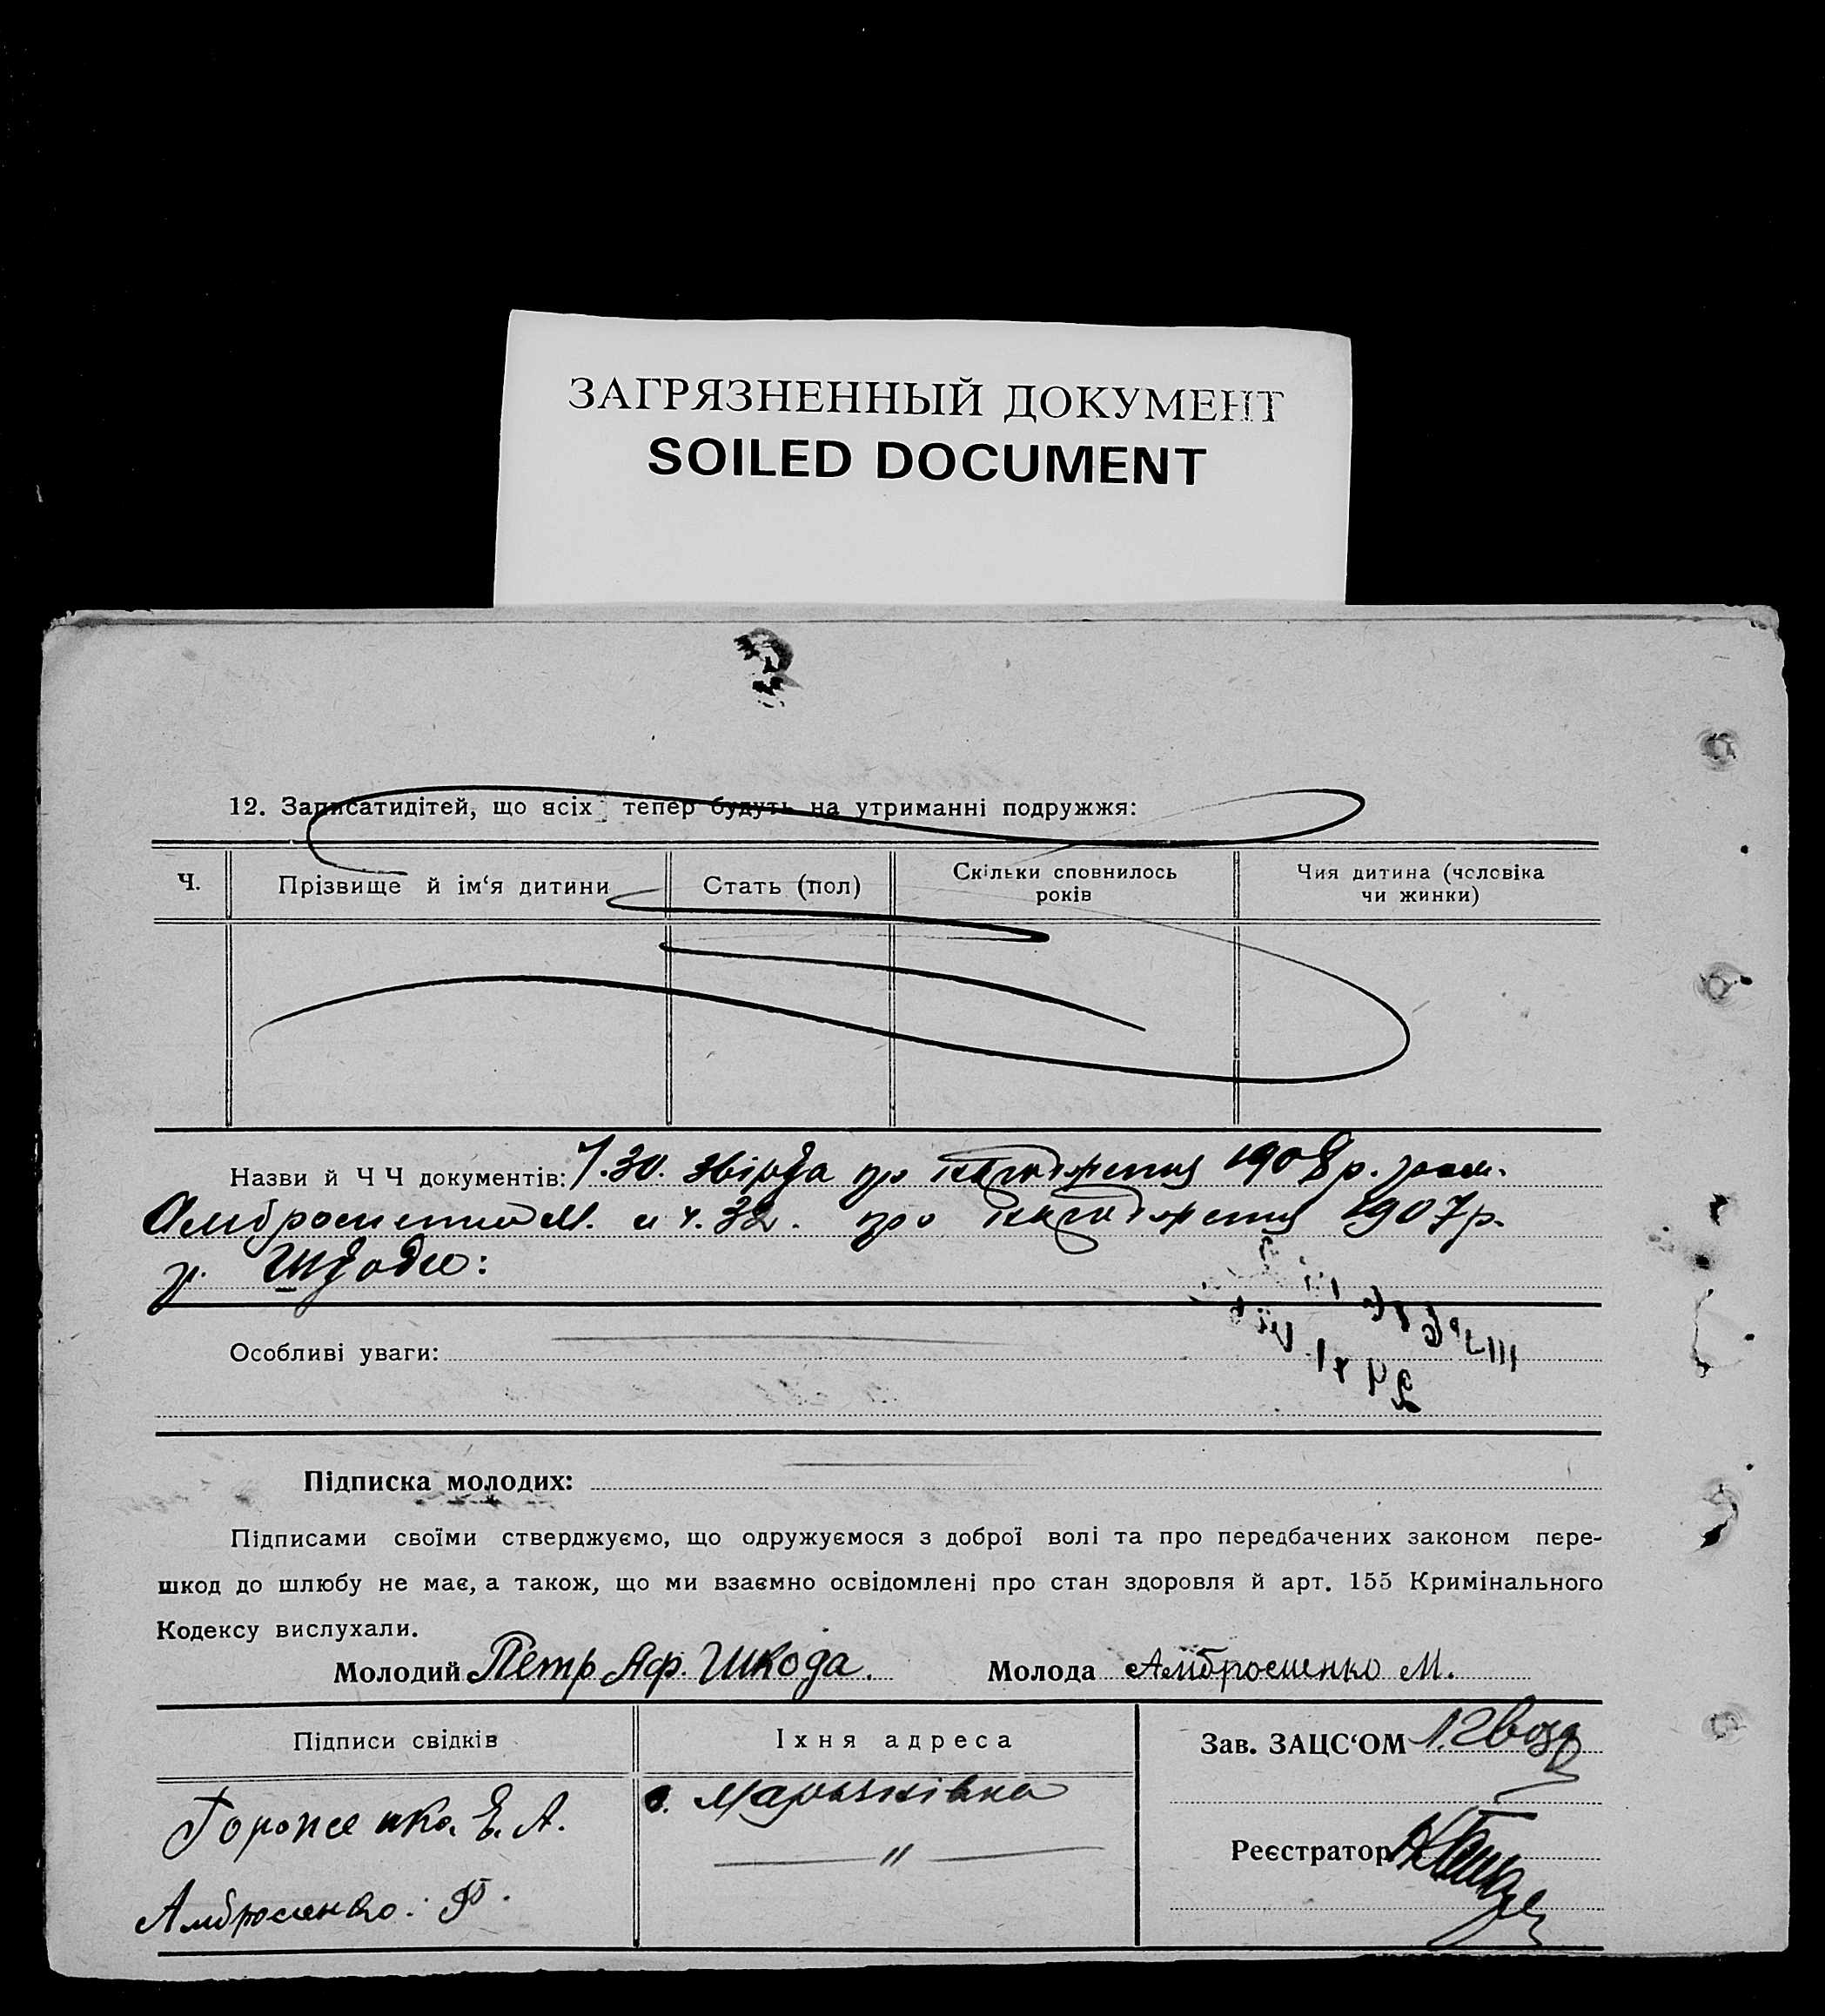 ЗАГРЯЗНЕННЫЙ ДОКУМЕНТ
SOILED DOCUMENT
12. Записатидітей, що всіх тепер будуть на утриманні подружжя:
Ч.
Прізвище й ім‘я дитини
Стать (пол)
Скільки сповнилось
років
Чия дитина (чоловіка
чи жинки)
Назви й Ч Ч документів: Ч.30. про 1908 р. гром.
Амбросиенко М. и ч. 32. про 1907 р.
гр. Шкоди:
Особливі уваги:
Підписка молодих:
Підписами своїми стверджуємо, що одружуємося з доброї волі та про передбачених законом пере-
шкод до шлюбу не має, а також, що ми взаємно освідомлені про стан здоровля й арт. 155 Кримінального
Кодексу вислухали.
Молодий Петр Аф. Шкода. Молода Амбросиенко М.
Підписи свідків
Їхня адреса
Зав. ЗАЦС‘ОМ
Е. А.
с. Мар'янівка
"
Реєстратор
Амбросиенко. Ф.